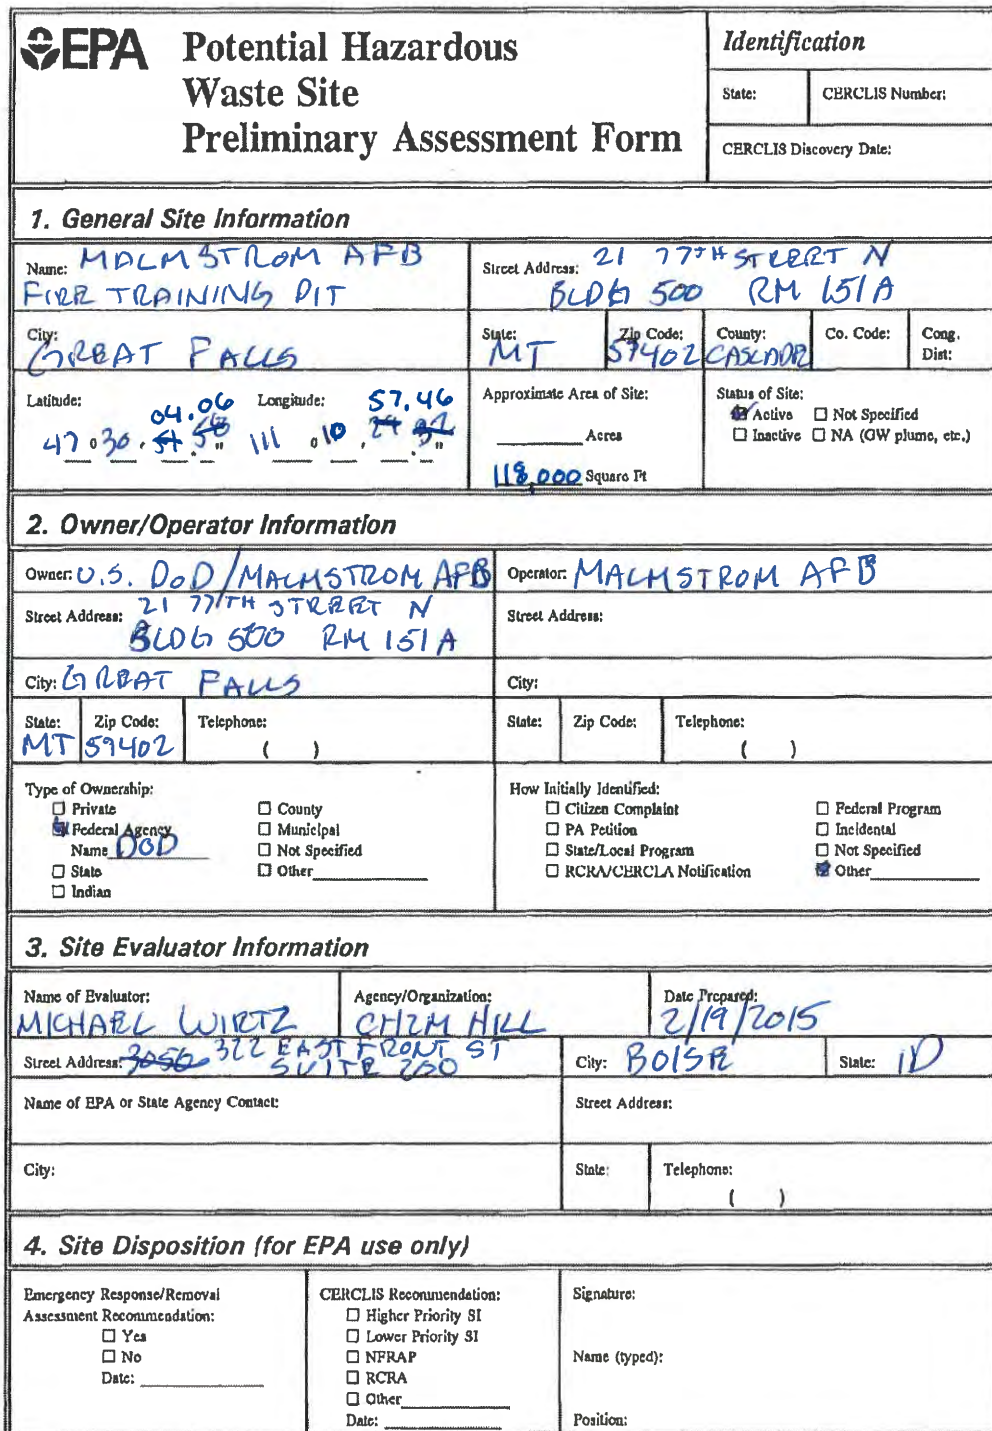 EPA Potential Hazardous
Waste Site
Preliminary Assessment Form
Identification
State: CERCLIS Number:
CERCLIS Discovery Date:
1. General Site Information
Name: MALMSTROM AFB
FIRE TRAINING PIT
Street Address: 21 77TH STREET N
BLDG 500 RM 151A
City:
GREAT FALLS
State:
MT
Zip Code:
59402
County:
CASCADE
Co. Code:
Cong.
Dist:
Latitude:
47 ° 30 ' 04.06 "
Longitude:
111 ° 10 ' 57.46 "
Approximate Area of Site:
Acres
118,000 Square Ft
Status of Site:
Active □ Not Specified
□ Inactive □ NA (GW plume, etc.)
2. Owner/Operator Information
Owner: U.S. DoD/MALMSTROM AFB
Operator: MALMSTROM AFB
Street Address: 21 77TH STREET N
BLDG 500 RM 151A
Street Address:
City: GREAT FALLS
City:
State:
MT
Zip Code:
59402
Telephone:
( )
State: Zip Code: Telephone:
( )
Type of Ownership:
□ Private □ County
Federal Agency □ Municipal
Name DOD □ Not Specified
□ State □ Other
□ Indian
How Initially Identified:
□ Citizen Complaint □ Federal Program
□ PA Petition □ Incidental
□ State/Local Program □ Not Specified
□ RCRA/CERCLA Notification Other
3. Site Evaluator Information
Name of Evaluator:
MICHAEL WIRTZ
Agency/Organization:
CH2M HILL
Date Prepared:
2/19/2015
Street Address: 3050 322 EAST FRONT ST
SUITE 200
City: BOISE
State: ID
Name of EPA or State Agency Contact:
Street Address:
City:
State: Telephone:
( )
4. Site Disposition (for EPA use only)
Emergency Response/Removal
Assessment Recommendation:
□ Yes
□ No
Date:
CERCLIS Recommendation:
□ Higher Priority SI
□ Lower Priority SI
□ NFRAP
□ RCRA
□ Other
Date:
Signature:
Name (typed):
Position: